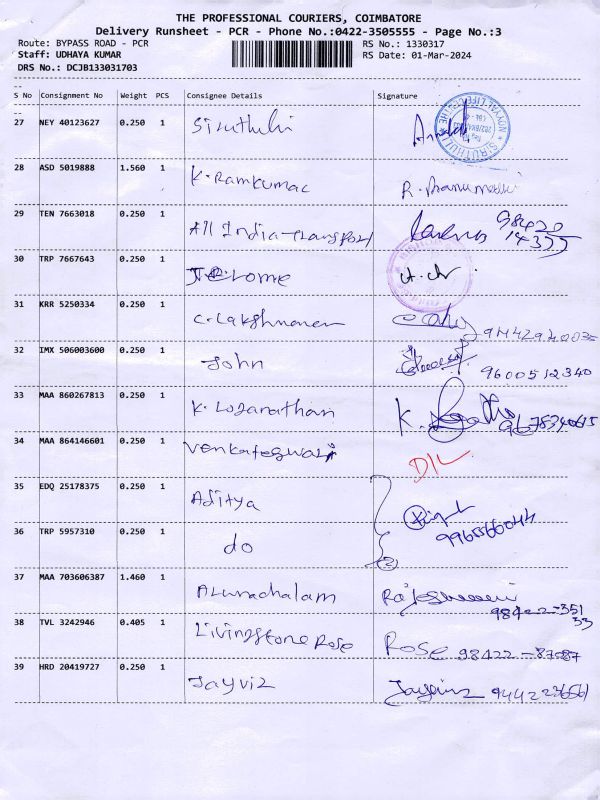 THE PROFESSIONAL COURIERS, COIMBATORE
Delivery Runsheet - PCR - Phone No.:0422-3505555 - Page No.:3
Route: BYPASS ROAD - PCR RS No.: 1330317
Staff: UDHAYA KUMAR RS Date: 01-Mar-2024
DRS No.: DCJB133031703
S No Consignment No Weight PCS Consignee Details Signature
27 NEY 40123627 0.250 1 Siruthuli
28 ASD 5019888 1.560 1 K. Ramkumar R.
29 TEN 7663018 0.250 1 All India Transport 98420
14355
30 TRP 7667643 0.250 1 Jerome
31 KRR 5250334 0.250 1 C. Lakshmanan
32 IMX 506003600 0.250 1 John 9600512340
33 MAA 860267813 0.250 1 K. Loganathan K.
34 MAA 864146601 0.250 1 Venkateswari D/L
35 EDQ 25178375 0.250 1 Aditya
36 TRP 5957310 0.250 1 do
37 MAA 703606387 1.460 1 Arunachalam 98422-351
33
38 TVL 3242946 0.405 1 Livingstone Rose Rose 98422-87087
39 HRD 20419727 0.250 1 Jayviz